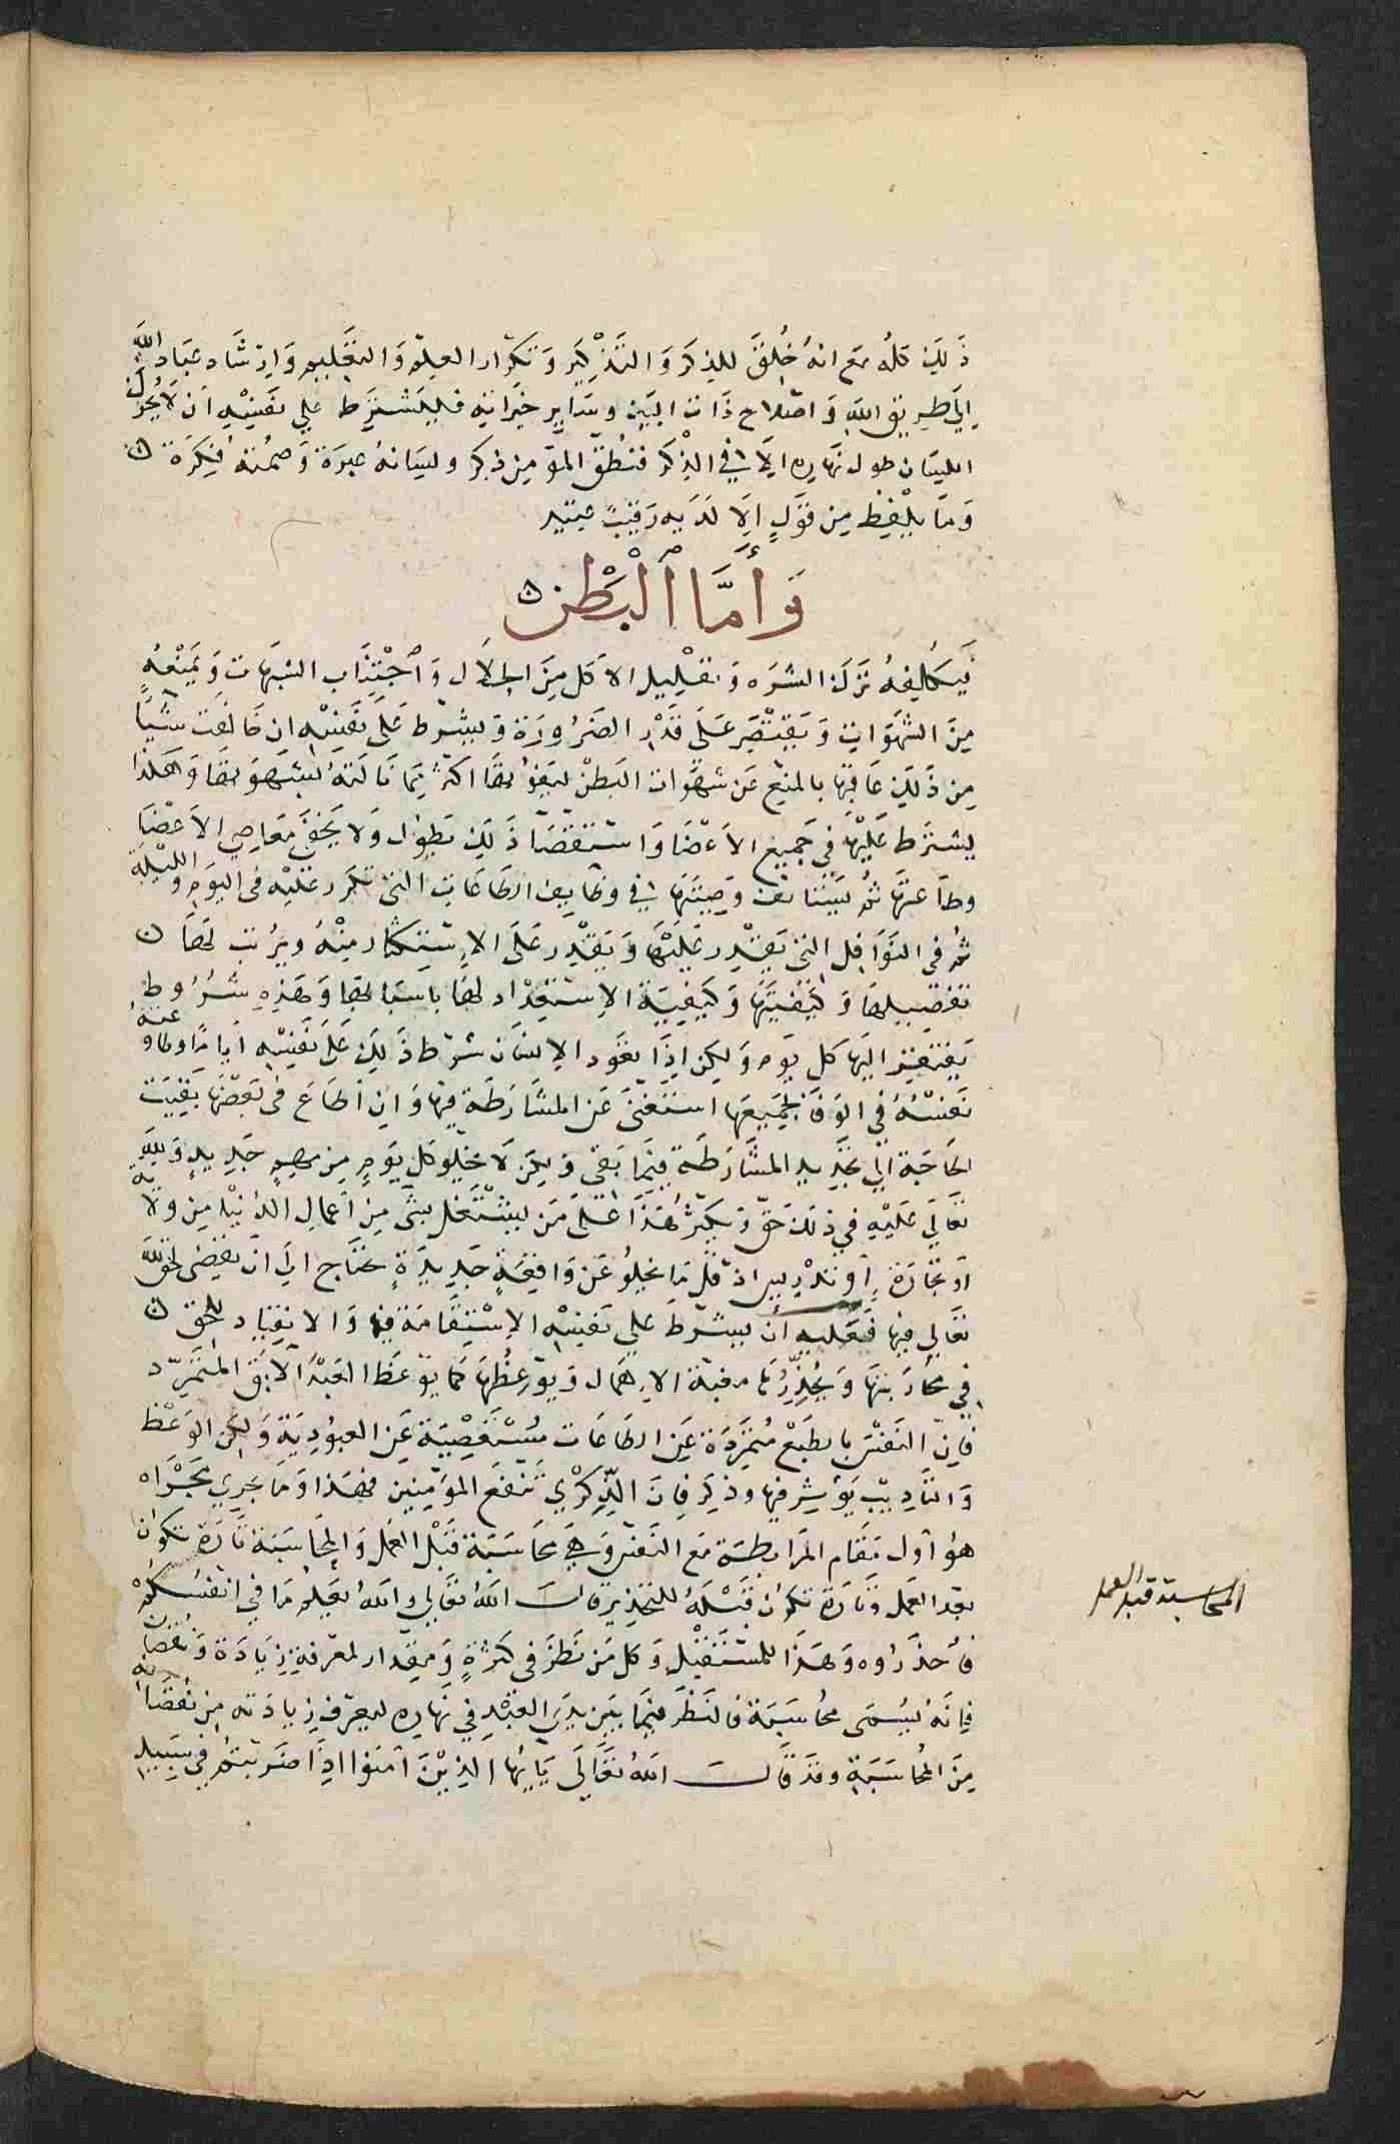 ذَلِكَ كلُه مع انهُ خُلِقَ للذِكرِ وَ التَذْكِيرِ وَ تكرَار العِلمِ وَ التعَليمِ وَ اِرشَاد عبَاد اللَّهِ
اِلَي طريق اللهِ وَ اصْلاح ذَات البَين وسَايِر خيرَاتِهِ فليَشترِط علي نفسِهِ اَن لاَ يُحرِّك
اللسَان طول نهَاره اِلاَ في الذِكْرِ فنُطقَ الموْمِن ذِكر ولسِانهُ عبرَة وَصمُتهُ فِكرَة ۞
وَمَا يلْفِظ مِن قوَلٍ اِلاَ لدَيهِ رَقيبٌ عتيد
وَأَمَّا ٱلْبَطْنُ ۞
فَيكُلِفهُ تَركَ الشرَه وَ تقلِيل الاَكل مِنَ الحلاَل وَ ٱجْتِنَاب الشبَهات وَ يمَنعهُ
مِنَ الشهَوَاتِ وَ يقَتصِر عَلىَ قدْرِ الضَرُورَة وَ يشرَط عَلى نفَسِهِ ان خالفَت شيًا
مِن ذَلِكَ عَاقبَهَا بالمنَع عَن شهَوات البَطنْ ليَفوُتهَا اكثَر مِمَا نَالتَهُ بشهوَتهَا وَ هَكذا
يشترَط عَليْهَا في جَميِع الاَعضَا وَ استقصَا ذَلِك يطوُل وَلاَ يخفَى مَعَاصِي الاَعضَا
وطاَعتهَا ثمُ يَستَانف وَصِيتَهَا في وظَايف الطَاعَات التي تَكرَر علَيْه في اليوَم والليْلة
ثمُ في النوَافِل التي يقَدِر عَليَهَا وَ يَقدِر عَلىَ الاِستِكثار مِنْهُ ويرَتب لهَا ۞
تفصِيلهَا وَ كَيْفيتَهَا وَ كيَفِيَة الاِستعِدْاد لهَا باسبَابهَا وَ هَذِهِ شُرُوط
يَفتقَر اليَها كل يوَم وَ لكن اِذَا تعَود الاِنسَان شرَط ذَلِك عَلىَ نفَسِهِ ايَامًا وطاوعته
نَفسُهُ في الوَفا بجَمِيعهَا استغنَى عَن المشَارَطَة فيهَا وَ ان اَطَاعَ في بعَضِهَا بَقِيَت
الحَاجَة الي تجدِيد المشَارَطَة فيِمَا بَقى وَ لكِن لاَ يخلو كل يوَمٍ مِن مهمٍ جَدِيدٍ وَ للَّهِ
تعَالَي عَليْهِ في ذلكَ حَقٌ وَ يكثُر هَذَا عَلىَ مَن يشتَغل بشَئ مِن اَعمالِ الدُنيْا مِن ولاية
اَو تجارَة اَو تدْرِيس اذ قَلّ مَا يخلوُ عَن وَاقعَةٍ جَديدَةٍ يحتاج الِيَ اَن يقضَى لحقَ اللَّه
تعَالي فيهَا فَعَلَيه أَن يشرَط علي نفَسِهِ الاِسْتِقَامَة فيهَا وَ الانقِيَاد للحق ۞
فِي مجَارَيهَا وَ يُحَذِرُهَا مغبَة الاِهمَال وَ يوَعظُهَا كمَا يوَعَظ العَبْدُ الاَبِق المُتمَرِّد
فَاِنَ النَفَس باِلطَبْع مُتمَرِدَة عَنِ الطَاعَات مُسْتَعْصِيَة عَنِ العبوُدِيَةِ وَ لكِن الوَعْظ
وَ التأدِيبْ يؤَثِر فيهَا وذكِر فِانَ الذِكرْي تنَفعَ المؤمِنِين فَهَذَا وَمَا يَجرِي مَجرَاه
هوَ اول مَقَام المرَابطَة مَع النَفَس وَ هِيَ محَاسَبَة قبَل العَمَل وَ المحَاسَبَة تَارَة تكوُن
بعَد العَمل وَ تَارَة تكوُن قَبْلَهُ للتحَذِير قالَ اللَّهُ تعَالي وَ اللَّهُ يعَلمُ مَا في انفُسكُمْ
فاحذَرُوه وَ هَذَا للمسُتَقبَلِ وَ كل مَن نَظَرَ في كَثرَةٍ وَ مِقدَار لمعرَفَةِ زِيَادَة وَ نُقصَان
فاِنَهُ يسُمَى محُاسَبَة فالنَظَر فيِمَا بَين يدَيَ العَبْدِ في نهَاره ليعَرف زِيادَته مِن نُقصَانه
مِنَ المُحَاسَبَة وقدَ قَالَ اللَّهُ تعَالَى يَايُهَا الذِيْنَ آمَنوُا اِذَا ضَرَبتمُ في سَبِيل
المحاسبة قبل العمل